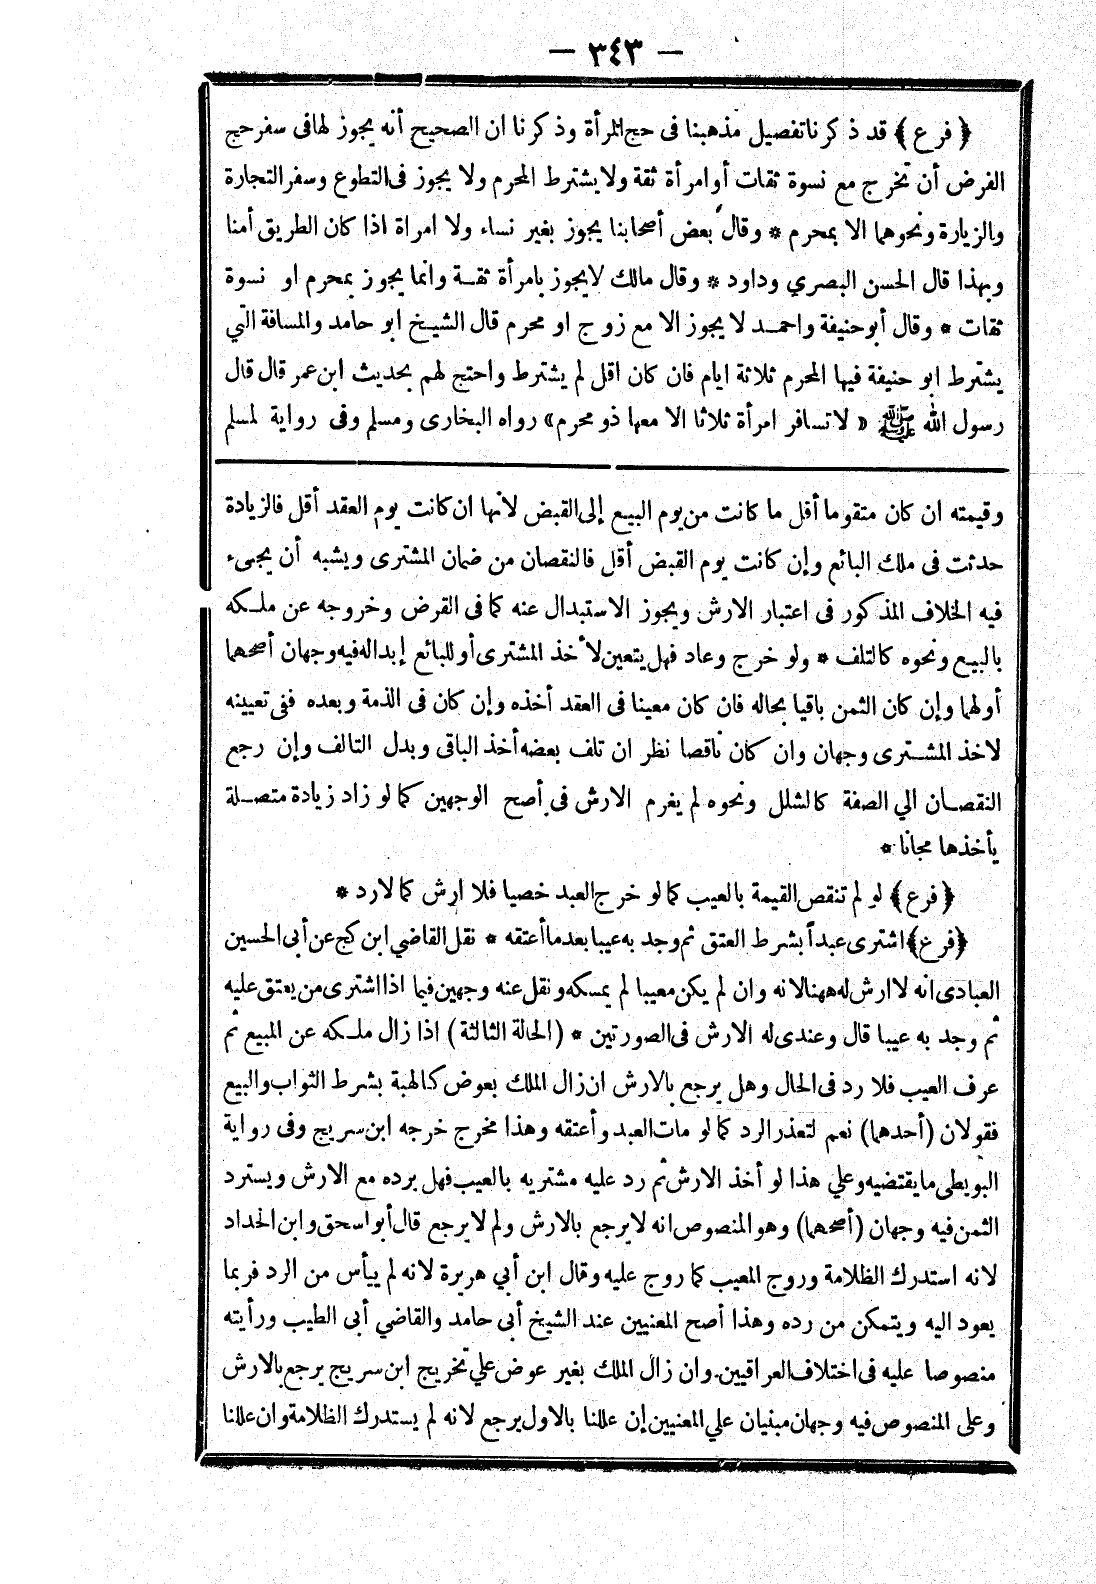 — ٣٤٣ —
﴿ فرع ﴾ قد ذكرنا تفصيل مذهبنا فى حج المرأة وذكرنا ان الصحيح أنه يجوز لها فى سفر حج
الفرض أن تخرج مع نسوة ثقات أو امرأة ثقة ولا يشترط المحرم ولا يجوز فى التطوع وسفر التجارة
والزيارة ونحوهما الا بمحرم * وقال بعض أصحابنا يجوز بغير نساء ولا امراة اذا كان الطريق أمنا
وبهذا قال الحسن البصري وداود * وقال مالك لا يجوز بامرأة ثقـة وانما يجوز بمحرم او نسوة
ثقات * وقال أبو حنيفة واحمـد لا يجوز الا مع زوج او محرم قال الشيـخ ابو حامد والمسافة التي
يشترط ابو حنيفة فيها المحرم ثلاثة ايام فان كان اقل لم يشترط واحتج لهم بحديث ابن عمر قال قال
رسول الله ﷺ « لا تسافر امرأة ثلاثا الا معها ذو محرم» رواه البخارى ومسلم وفى رواية لمسلم
وقيمته ان كان متقوما أقل ما كانت من يوم البيع إلى القبض لانها ان كانت يوم العقد أقل فالزيادة
حدثت فى ملك البائع وإن كانت يوم القبض أقل فالنقصان من ضمان المشترى ويشبه أن يجىء
فيه الخلاف المذكور فى اعتبار الارش ويجوز الاستبدال عنه كما فى القرض وخروجه عن ملـكه
بالبيع ونحوه كالتلف * ولو خرج وعاد فهل يتعين لأخذ المشترى أو للبائع إبداله فيه وجهان أصحهما
أولهما وإن كان الثمن باقيا بحاله فان كان معينا فى العقد أخذه وإن كان فى الذمة وبعده ففى تعيينه
لاخذ المشـترى وجهان وان كان ناقصا نظر ان تلف بعضه أخذ الباقى وبدل التالف وإن رجع
النقصـان الي الصفة كالشلل ونحوه لم يغرم الارش فى أصح الوجهين كما لو زاد زيادة متصـلة
يأخذها مجانا *
﴿ فرع ﴾ لو لم تنقص القيمة بالعيب كما لو خرج العبد خصيا فلا ارش كما لا رد *
﴿ فرغ ﴾ اشترى عبداً بشرط العتق ثم وجد به عيبا بعد ما أعتقه * نقل القاضي ابن كج عن أبى الحسين
العبادى انه لا ارش له ههنا لانه وان لم يكن معيبا لم يمسكه ونقل عنه وجهين فيما اذا اشترى من يعتق عليه
ثم وجد به عيبا قال وعندى له الارش فى الصورتين * (الحالة الثالثة) اذا زال ملـكه عن المبيع ثم
عرف العيب فلا رد فى الحال وهل يرجع بالارش ان زال الملك بعوض كالهبة بشرط الثواب والبيع
فقولان (أحدهما) نعم لتعذر الرد كما لو مات العبد وأعتقه وهذا مخرج خرجه ابن سريج وفى رواية
البويطى ما يقتضيه وعلي هذا لو أخذ الارش ثم رد عليه مشتريه بالعيب فهل يرده مع الارش ويسترد
الثمن فيه وجهان (أصحهما) وهو المنصوص انه لا يرجع بالارش ولم لا يرجع قال أبو اسحق وابن الحداد
لانه استدرك الظلامة وروج المعيب كما روج عليه وقال ابن أبي هريرة لانه لم ييأس من الرد فربما
يعود اليه ويتمكن من رده وهذا أصح المعنيين عند الشيخ أبى حامد والقاضي أبى الطيب ورأيته
منصوصا عليه فى اختلاف العراقيين.وان زال الملك بغير عوض علي تخريج ابن سريج يرجع بالارش
وعلى المنصوص فيه وجهان مبنيان علي المعنيين إن عللنا بالاول يرجع لانه لم يستدرك الظلامة وان عللنا